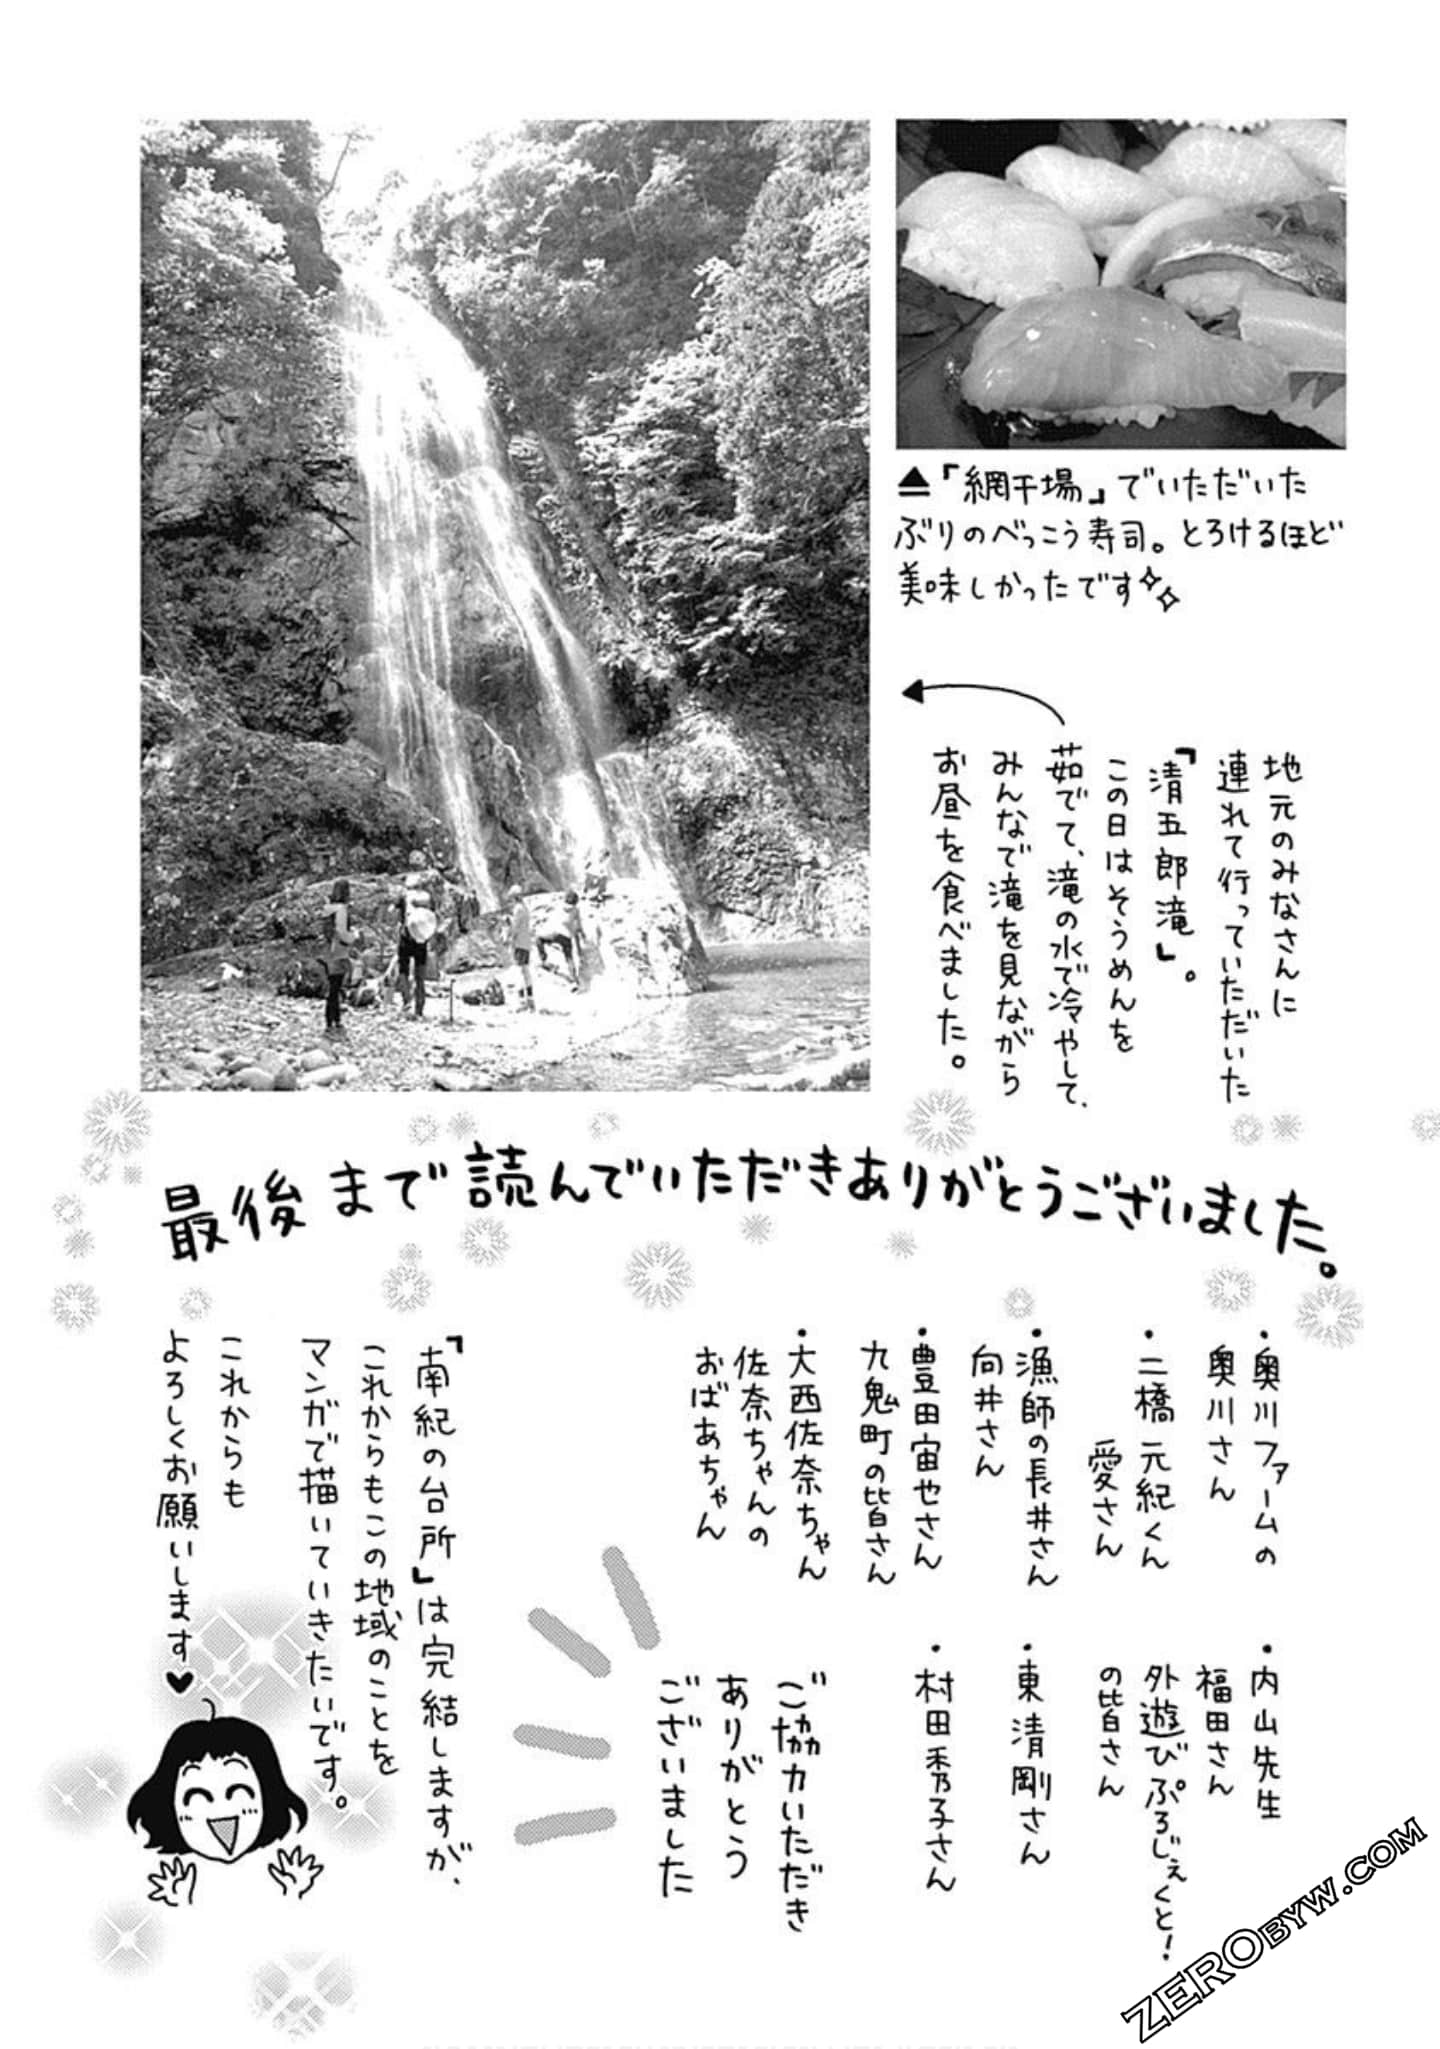 ▲『網干場』でいただいた
ぶりのべっこう寿司。とろけるほど
美味しかったです
地元のみなさんに
連れて行っていただいた
『清五郎滝』。
この日はそうめんを
茹でて、滝の水で冷やして、
みんなで滝を見ながら
お昼を食べました。
最後まで読んでいただきありがとうございました。
・奥川ファームの
奥川さん
・二橋元紀くん
愛さん
・漁師の長井さん
向井さん
・豊田宙也さん
九鬼町の皆さん
・大西佐奈ちゃん
佐奈ちゃんの
おばあちゃん
・内山先生
福田さん
外遊びぷろじぇくと!
の皆さん
・東清剛さん
・村田秀子さん
ご協力いただき
ありがとう
ございました
『南紀の台所』は完結しますが、
これからもこの地域のことを
マンガで描いていきたいです。
これからも
よろしくお願いします♥
ZEROBYW.COM